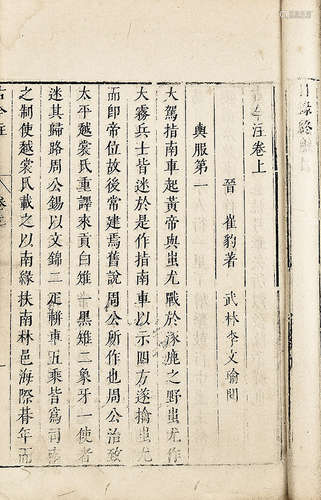 注卷上
晉 崔豹著 武林李文瑜閱
輿服第一
大駕指南車起黃帝與蚩尤戰於涿鹿之野蚩尤作
大霧兵士皆迷於是作指南車以示四方遂擒蚩尤
而即帝位故後常建焉舊說周公所作也周公治致
太平越裳氏重譯來貢白雉一黑雉二象牙一使者
迷其歸路周公錫以文錦二疋軿車五乘皆爲司南
之制使越裳氏載之以南緣扶南林邑海際朞年而
古今注